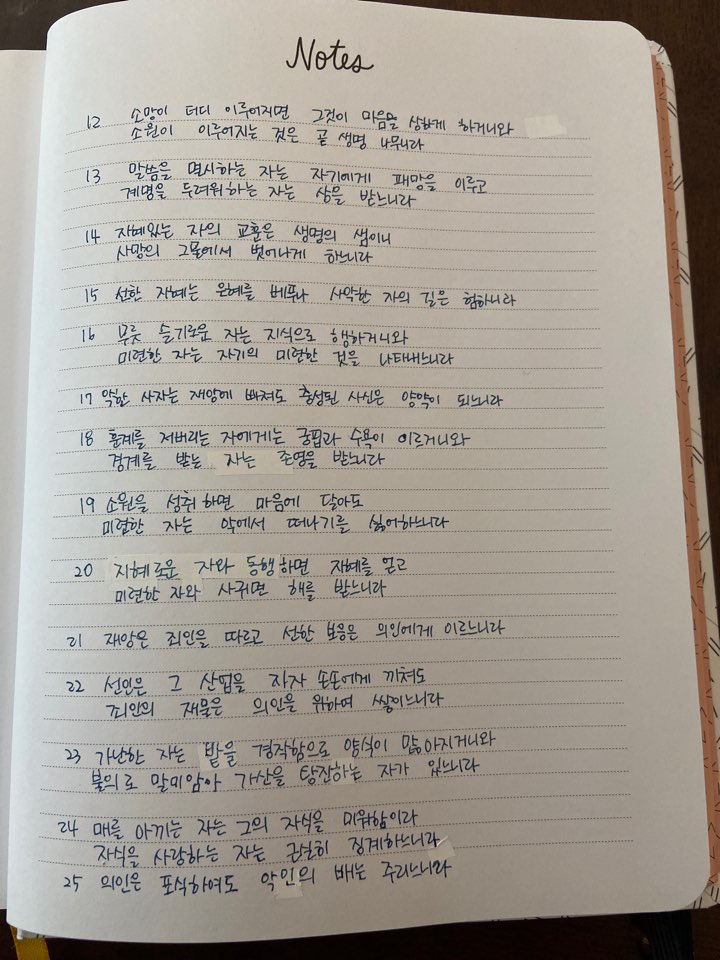 Notes
12 소망이 더디 이루어지면 그것이 마음을 상하게 하거니와
소원이 이루어지는 것은 곧 생명 나무니라
13 말씀을 멸시하는 자는 자기에게 패망을 이루고
계명을 두려워하는 자는 상을 받느니라
14 지혜있는 자의 교훈은 생명의 샘이니
사망의 그물에서 벗어나게 하느니라
15 선한 지혜는 은혜를 베푸나 사악한 자의 길은 험하니라
16 무릇 슬기로운 자는 지식으로 행하거니와
미련한 자는 자기의 미련한 것을 나타내느니라
17 악한 사자는 재앙에 빠져도 충성된 사신은 양약이 되느니라
18 훈계를 저버리는 자에게는 궁핍과 수욕이 이르거니와
경계를 받는 자는 존영을 받느니라
19 소원을 성취하면 마음에 달아도
미련한 자는 악에서 떠나기를 싫어하느니라
20 지혜로운 자와 동행하면 지혜를 얻고
미련한 자와 사귀면 해를 받느니라
21 재앙은 죄인을 따르고 선한 보응은 의인에게 이르느니라
22 선인은 그 산업을 자자 손손에게 끼쳐도
죄인의 재물은 의인을 위하여 쌓이느니라
23 가난한 자는 밭을 경작함으로 양식이 많아지거니와
불의로 말미암아 가산을 탕진하는 자가 있느니라
24 매를 아끼는 자는 그의 자식을 미워함이라
자식을 사랑하는 자는 근실히 징계하느니라
25 의인은 포식하여도 악인의 배는 주리느니라